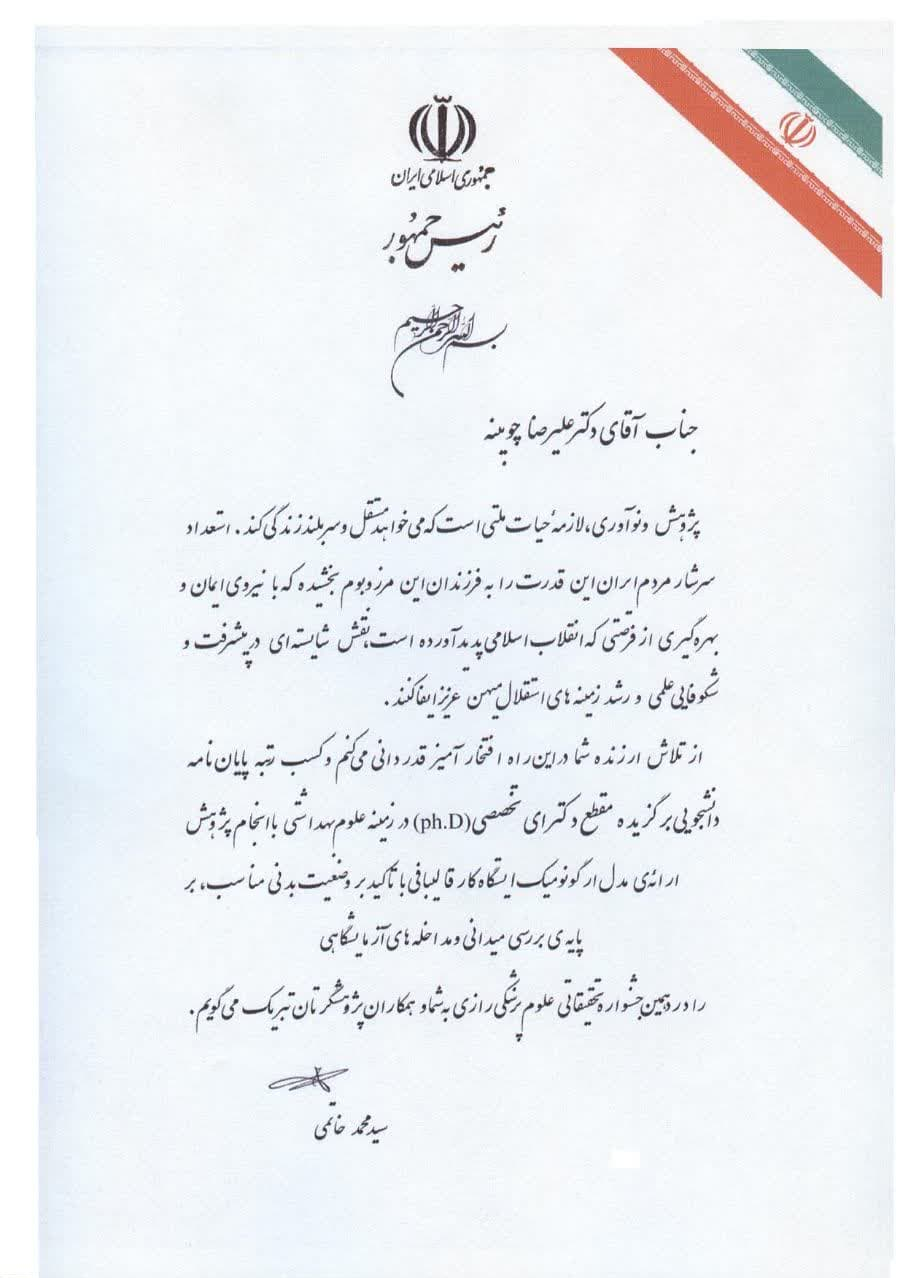 جمهوری اسلامی ایران
رئیس جمهور
بسم الله الرحمن الرحیم
جناب آقای دکتر علیرضا چوبینه
پژوهش و نوآوری، لازمهٔ حیات ملتی است که می خواهد مستقل و سربلند زندگی کند. استعداد
سرشار مردم ایران این قدرت را به فرزندان این مرز و بوم بخشیده که با نیروی ایمان و
بهره گیری از فرصتی که انقلاب اسلامی پدید آورده است، نقش شایسته ای در پیشرفت و
شکوفایی علمی و رشد زمینه های استقلال میهن عزیز ایفا کنند.
از تلاش ارزنده شما در این راه افتخار آمیز قدردانی می کنم و کسب رتبه پایان نامه
دانشجویی برگزیده مقطع دکترای تخصصی (ph.D) در زمینه علوم بهداشتی با انجام پژوهش
ارائه‌ی مدل ارگونومیک ایستگاه کار قالیبافی با تأکید بر وضعیت بدنی مناسب، بر
پایه ی بررسی میدانی و مداخله های آزمایشگاهی
را در دهمین جشنواره تحقیقاتی علوم پزشکی رازی به شما و همکاران پژوهشگرتان تبریک می گویم.
سید محمد خاتمی